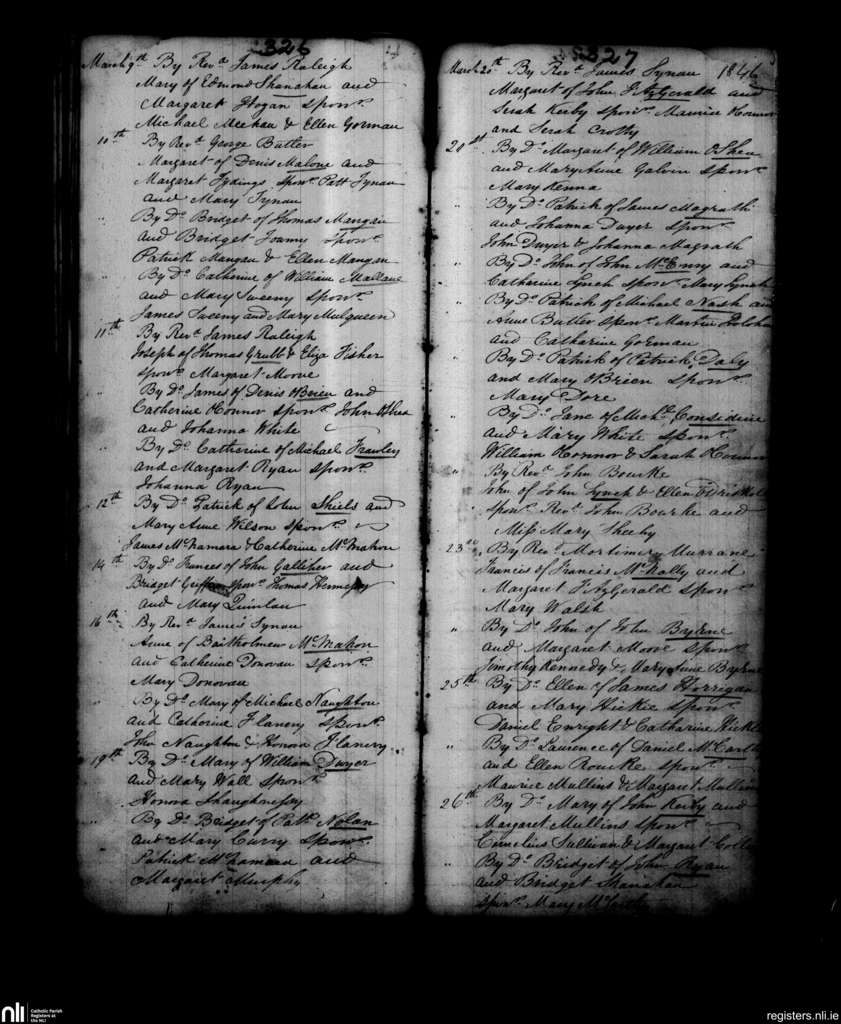 326
March 9th By Revd. James Raleigh
Mary of Edmond Shanahan and
Margaret Hogan sponrs.
Michael Meehan & Ellen Gorman
10th By Revd. George Butler
Margaret of Denis Malone and
Margaret sponrs. Patt Synan
and Mary Synan
" By Do. Bridget of Thomas Mangan
and Bridget sponrs.
Patrick Mangan & Ellen Mangan
" By Do. Catherine of William Mallane
and Mary Sweeny sponrs.
James Sweeny and Mary Mulqueen
11th By Revd. James Raleigh
Joseph of Thomas Grubb & Eliza Fisher
sponrs. Margaret Moore
" By Do. James of Denis OBrien and
Catherine OConnor sponrs. John OShea
and Johanna White
" By Do. Catherine of Michael Frawley
and Margaret Ryan sponrs.
Johanna Ryan
12th By Do. Patrick of John Shiels and
Mary Anne Wilson sponrs.
James McNamara & Catherine McMahon
14th By Do. Frances of John Galliher and
Bridget Griffin sponrs. Thomas Hennessy
and Mary Quinlan
16th By Revd. James Synan
Anne of Bartholmew McMahon
and Catherine Donovan sponrs.
Mary Donovan
" By Do. Mary of Michael Naughton
and Catherine Flanery sponrs.
John Naughton & Honora Flanery
19th By Do. Mary of William Dwyer
and Mary Wall sponrs.
Honora Shaughnessy
" By Do. Bridget of Patk. Nolan
and Mary Curry sponrs.
Patrick McNamara and
Margaret Murphy
327
March 20th By Revd. James Synan 1846
Margaret of John FitzGerald and
Sarah Kerby sponrs. Maurice OConnor
and Sarah Crotty
20st By Do. Margaret of William OShea
and Mary Anne Galvin sponrs.
Mary Kenna
" By Do. Patrick of James Magrath
and Johanna Dwyer sponrs.
John Dwyer & Johanna Magrath
" By Do. John of John McEnry and
Catherine Lynch sponrs. Mary Lynch
" By Do. Patrick of Michael Nash and
Anne Butler sponrs. Martin
and Catharine Gorman
" By Do. Patrick of Patrick Daly
and Mary OBrien sponrs.
Mary Dore
" By Do. Jane of Michl. Considine
and Mary White sponrs.
William OConnor & Sarah OConnor
" By Revd. John Bourke
John of John Lynch & Ellen ODriskol
sponrs. Revd. John Bourke and
Miss Mary Sheehy
23rd By Revd. Mortimer Murrane
Francis of Francis McNally and
Margaret FitzGerald sponrs.
Mary Walsh
" By Do. John of John Byrne
and Margaret Moore sponrs.
Timothy Kennedy & Mary Anne Byrne
25th By Do. Ellen of James Horrigan
and Mary Hickie sponrs.
Daniel Enright & Catharine Hickie
" By Do. Laurence of Daniel McCarthy
and Ellen Rourke sponrs.
Maurice Mullins & Margaret Mullins
26th By Do. Mary of John Kerby and
Margaret Mullins sponrs.
Cornelius Sullivan & Margaret
" By Do. Bridget of John Ryan
and Bridget Shanahan
sponrs. Mary
nli
Catholic Parish
Registers at
the NLI
registers.nli.ie